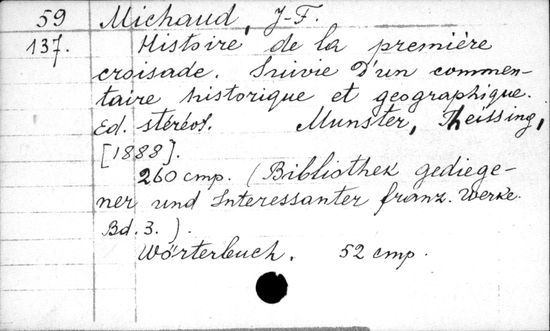 59 Michaud, J-F.
137. Histoire de la première
croisade. Suivie d'un commen-
taire historique et geographique.
Ed. stéréot. Munster, Theissing,
[1888].
260 cmp. (Bibliothek gediege-
ner und Interessanter franz. Werke.
Bd. 3.).
Wörterbuch. 52 cmp.